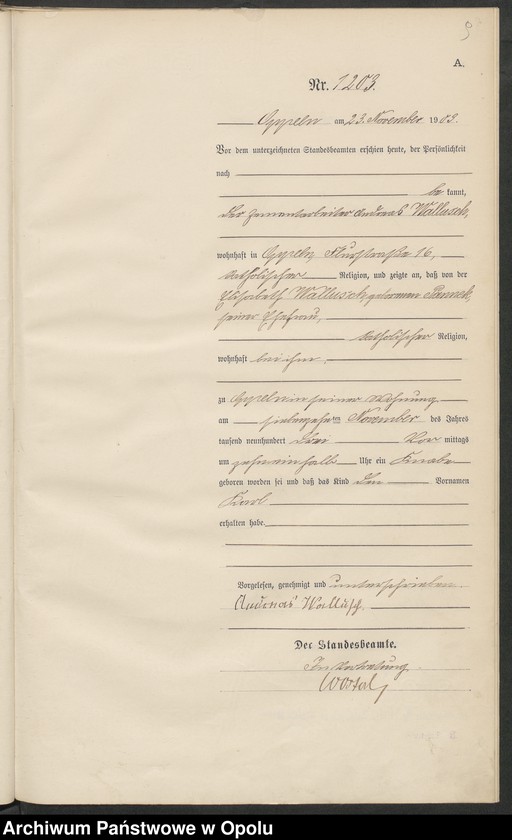 9
A.
Nr. 1203.
Oppeln am 23. November 1903.
Vor dem unterzeichneten Standesbeamten erschien heute, der Persönlichkeit
nach
be kannt,
der Zementarbeiter Andreas Wallusch,
wohnhaft in Oppeln, Flurstraße 16,
katholischer Religion, und zeigte an, daß von der
Elisabeth Wallusch, geborenen
seiner Ehefrau,
katholischer Religion,
wohnhaft bei ihm,
zu Oppeln in seiner Wohnung
am siebenzehnten November des Jahres
tausend neunhundert drei Vor mittags
um zehneinhalb Uhr ein Knabe
geboren worden sei und daß das Kind den Vornamen
Karl
erhalten habe.
Vorgelesen, genehmigt und unterschrieben.
Andreas Wallusch
Der Standesbeamte.
In Vertretung.
Archiwum Państwowe w Opolu